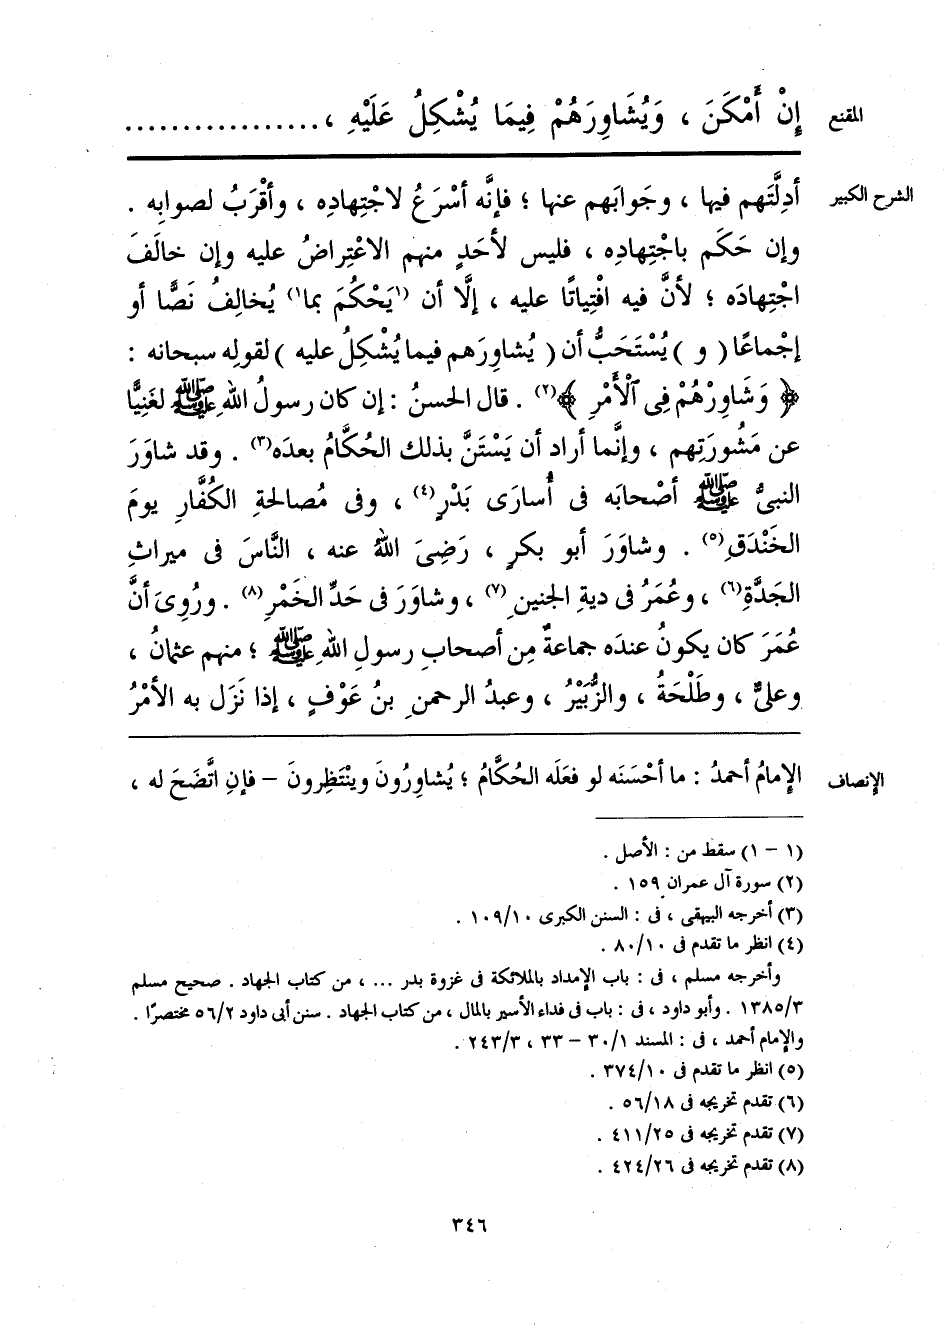 المقنع إِنْ أَمْكَنَ ، وَيُشَاوِرَهُمْ فِيمَا يُشْكِلُ عَلَيْهِ ، .................
الشرح الكبير أدِلَّتَهم فيها ، وجَوابَهم عنها ؛ فإنَّه أسْرَعُ لاجْتِهادِه ، وأقْرَبُ لصوابِه .
وإن حَكَم باجْتِهادِه ، فليس لأحَدٍ منهم الاعْتِراضُ عليه وإن خالَفَ
اجْتِهادَه ؛ لأنَّ فيه افْتِياتًا عليه ، إلَّا أن (١يَحْكُمَ بما١) يُخالِفُ نَصًّا أو
إجْماعًا ( و ) يُسْتَحَبُّ أن ( يُشاوِرَهم فيما يُشْكِلُ عليه ) لقولِه سبحانه :
﴿ وَشَاوِرْهُمْ فِى ٱلْأَمْرِ ﴾(٢) . قال الحسنُ : إن كان رسولُ اللهِ ﷺ لغَنِيًّا
عن مَشُورَتِهم ، وإنَّما أراد أن يَسْتَنَّ بذلك الحُكَّامُ بعدَه(٣) . وقد شاوَرَ
النبىُّ ﷺ أصْحابَه فى أُسارَى بَدْرٍ(٤) ، وفى مُصالحةِ الكُفَّارِ يومَ
الخَنْدَقِ(٥) . وشاوَرَ أبو بكرٍ ، رَضِىَ اللهُ عنه ، النَّاسَ فى ميراثِ
الجَدَّةِ(٦) ، وعُمَرُ فى ديةِ الجنينِ(٧) ، وشاوَرَ فى حَدِّ الخَمْرِ(٨) . ورُوِىَ أنَّ
عُمَرَ كان يكونُ عندَه جماعةٌ مِن أصحابِ رسولِ اللهِ ﷺ ؛ منهم عثمانُ ،
وعلىٌّ ، وطَلْحَةُ ، والزُّبَيْرُ ، وعبدُ الرحمنِ بنُ عَوْفٍ ، إذا نَزَل به الأمْرُ
الإنصاف الإِمامُ أحمدُ : ما أحْسَنَه لو فعَلَه الحُكَّامُ ؛ يُشاوِرُونَ ويَنْتَظِرونَ – فإنِ اتَّضَحَ له ،
(١ – ١) سقط من : الأصل .
(٢) سورة آل عمران ١٥٩ .
(٣) أخرجه البيهقى ، فى : السنن الكبرى ١٠٩/١٠ .
(٤) انظر ما تقدم فى ٨٠/١٠ .
وأخرجه مسلم ، فى : باب الإمداد بالملائكة فى غزوة بدر ... ، من كتاب الجهاد . صحيح مسلم
١٣٨٥/٣ . وأبو داود ، فى : باب فى فداء الأسير بالمال ، من كتاب الجهاد . سنن أبى داود ٥٦/٢ مختصرًا .
والإمام أحمد ، فى : المسند ٣٠/١ – ٣٣ ، ٢٤٣/٣ .
(٥) انظر ما تقدم فى ٣٧٤/١٠ .
(٦) تقدم تخريجه فى ٥٦/١٨ .
(٧) تقدم تخريجه فى ٤١١/٢٥ .
(٨) تقدم تخريجه فى ٤٢٤/٢٦ .
٣٤٦